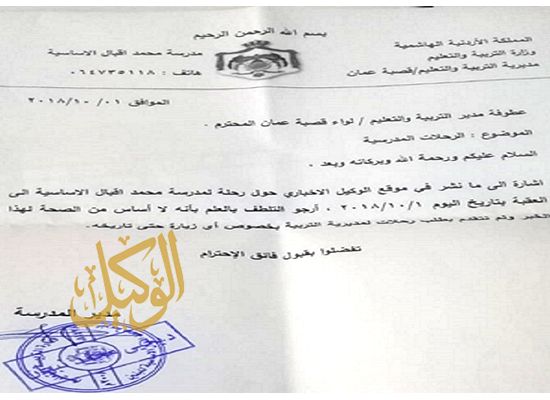 بسم الله الرحمن الرحيم
المملكة الأردنية الهاشمية
وزارة التربية والتعليم
مديرية التربية والتعليم/قصبة عمان
مدرسة محمد اقبال الاساسية
هاتف : ٠٦٤٧٣٥١١٨
الموافق ٠١/ ٢٠١٨/١٠
عطوفة مدير التربية والتعليم / لواء قصبة عمان المحترم .
الموضوع : الرحلات المدرسية
السلام عليكم ورحمة الله وبركاته وبعد .
اشارة الى ما نشر في موقع الوكيل الاخباري حول رحلة لمدرسة محمد اقبال الاساسية الى
العقبة بتاريخ اليوم ٢٠١٨/١٠/١ ، أرجو التلطف بالعلم بأنه لا أساس من الصحة لهذا
الخبر ولم نتقدم بطلب رحلات لمديرية التربية بخصوص أي زيارة حتى تاريخه .
تفضلوا بقبول فائق الإحترام
الوكيل
مدير المدرسة